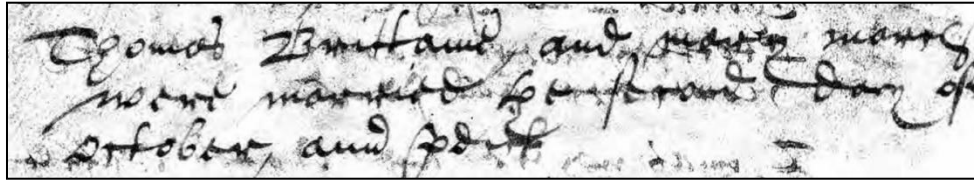 Thomas Brittaine and mary march
were married the second day of
October, and